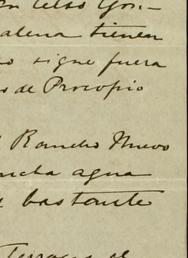 n Celso Gon-
alena tienen
o sigue fuera
s de Procopio
l Rancho Nuevo
ncha agua
y bastante
Terrazas el